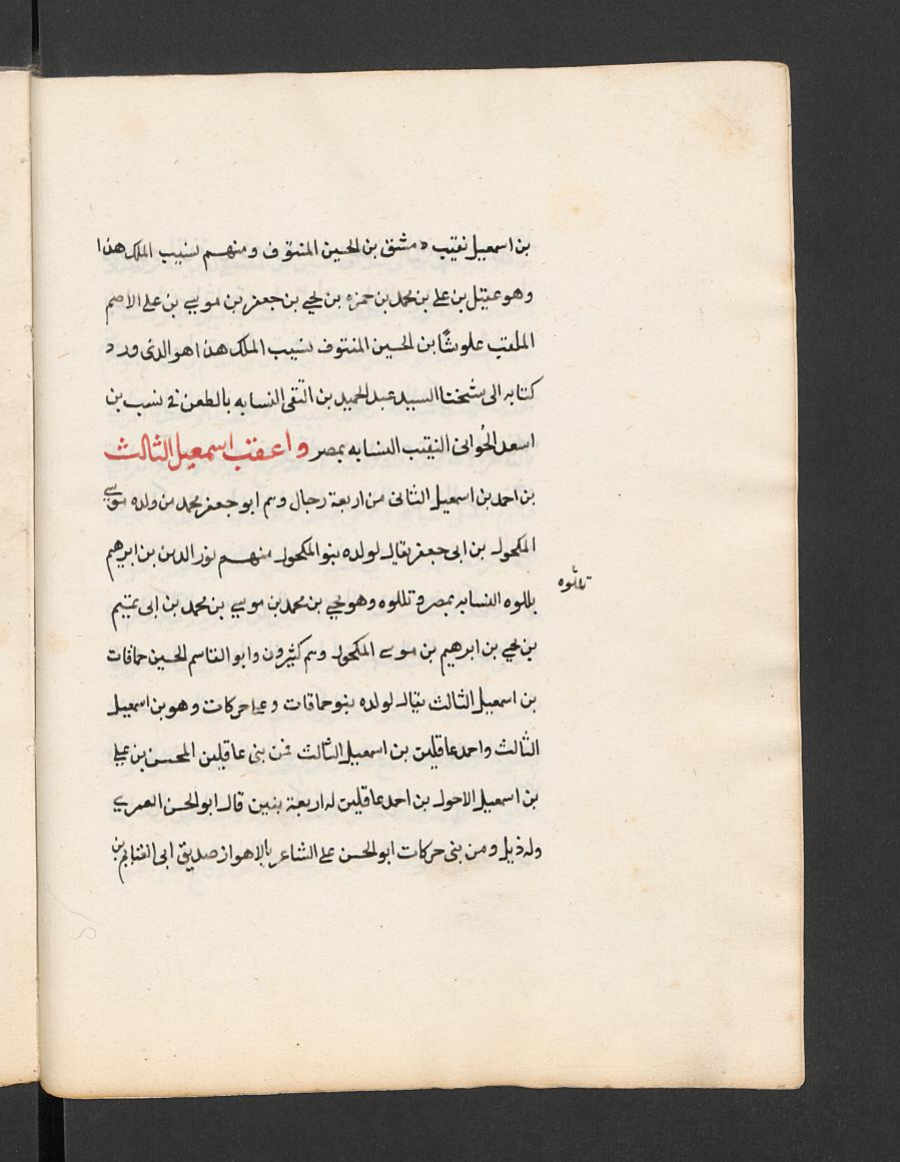 بن اسمعيل نقيب دمشق بن الحسين المنتوف ومنهم نسيب الملك هذا
وهو عقيل بن على بن محمد بن حمزه بن يحيى بن جعفر بن موسى بن على الاصم
الملقب علوشًا بن الحسين المنتوف نسيب الملك هذا هو الذى ورد
كتابه الى شيخنا السيد عبد الحميد بن التقى النسابه بالطعن فى نسب بن
اسعد الجُوانى النقيب النسابه بمصر واعقب اسمعيل الثالث
بن احمد بن اسمعيل الثانى من اربعة رجال وهم ابو جعفر محمد من ولده موسى
المكحول بن ابى جعفر يقال لولده بنو المكحول منهم نور الدين بن ابرهيم
بللوه النسابه بمصر وتللوه وهو يحيى بن محمد بن موسى بن محمد بن ابى تميم
تللُوه
بن يحيى بن ابرهيم بن موسى المكحول وهم كثيرون وابو القاسم الحسين حماقات
بن اسمعيل الثالث يقال لولده بنو حماقات وعلى حركات وهو بن اسمعيل
الثالث واحمد عاقلين بن اسمعيل الثالث فمن بنى عاقلين المحسن بن على
بن اسمعيل الاحول بن احمد عاقلين له اربعة بنين قال ابو الحسن العمرى
وله ذيل ومن بنى حركات ابو الحسن على الشاعر بالاهواز صديق ابى الغنايم بن